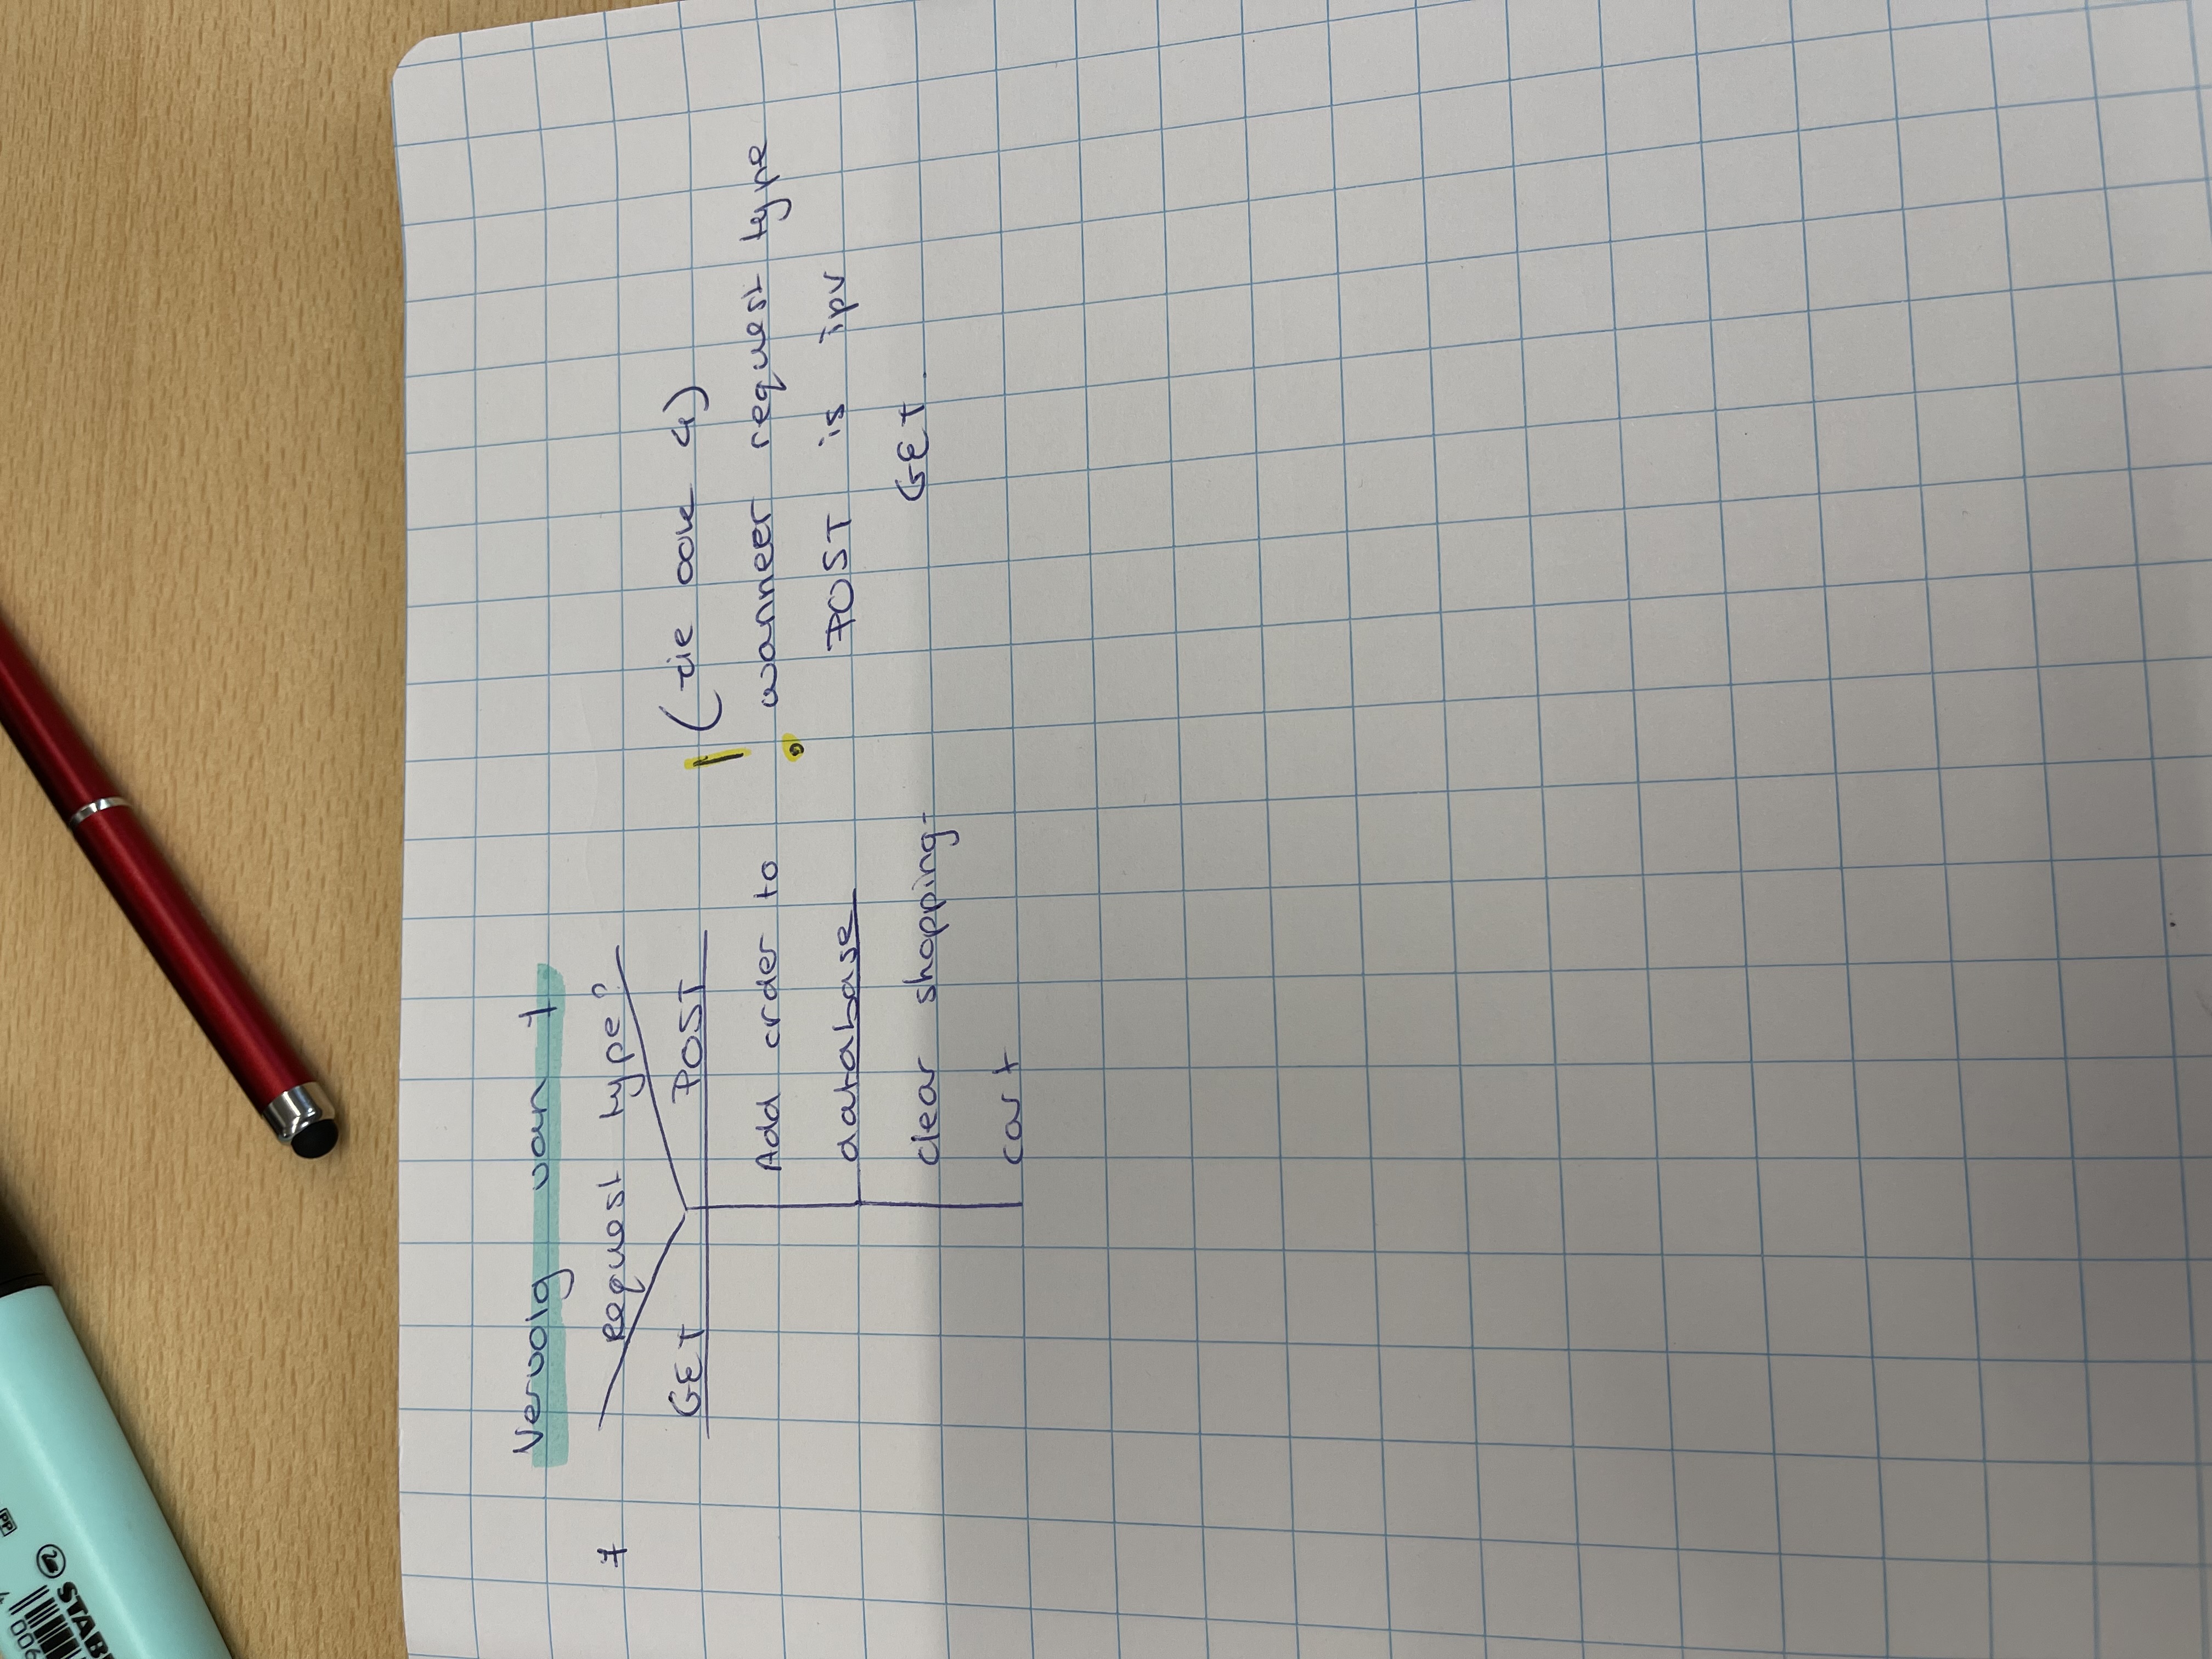 STAB
006
PP
Vervolg van 7
7 Request type?
GET POST
Add order to
database
clear shopping-
cart
! (zie ook 4)
wanneer request type
POST is ipv
GET.